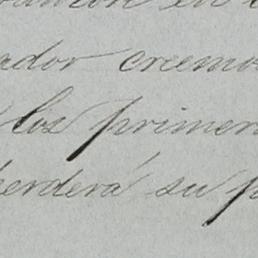 ador creemo
los primer
perderá su p